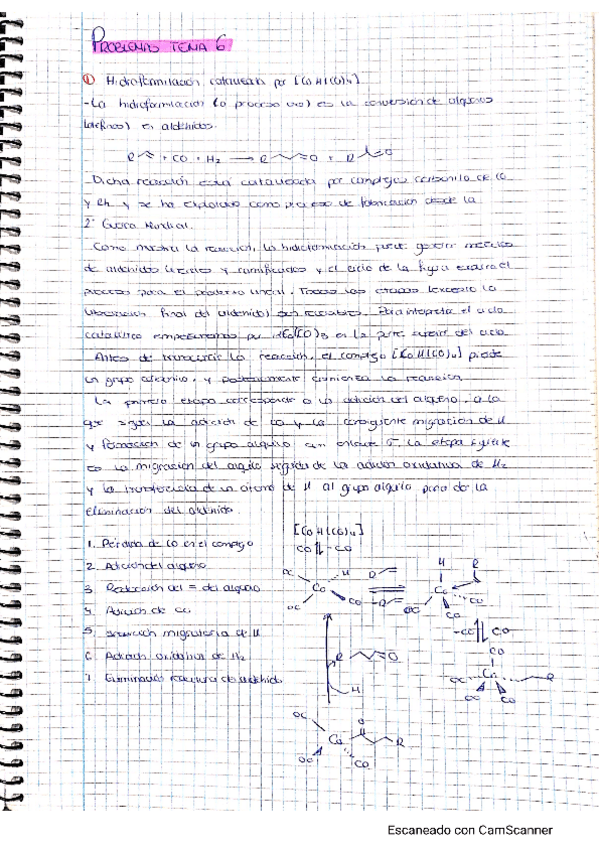 PROBLEMAS TEMA 6
① Hidroformilación catalizada por [CoH(CO)₄]
- La hidroformilación (o proceso oxo) es la conversión de alquenos
(olefinas) en aldehidos.
R + CO + H₂ → R =O + R =O
Dicha reacción está catalizada por complejos carbonilo de Co
y Rh y se ha explotado como proceso de fabricación desde la
2ª Guerra Mundial.
Como muestra la reacción, la hidroformilación puede generar mezclas
de aldehidos lineales y ramificados y el ciclo de la figura explica el
proceso para el producto lineal. Todas las etapas (excepto la
liberación final del aldehido) son reversibles. Para interpretar el ciclo
catalítico empezaremos por HCo(CO)₃ en la parte superior del ciclo
Antes de la reacción, el complejo [CoH(CO)₄] pierde
un grupo y posteriormente comienza la reacción.
La primera etapa corresponde a la adición del alqueno, a la
que sigue la adición de CO y la consiguiente migración de H
y formación de un grupo alquilo con enlace σ. La etapa siguiente
es la migración del alquilo seguida de la adición oxidativa de H₂
y la transferencia de un átomo de H al grupo alquilo para dar la
eliminación del aldehido.
1. Pérdida de CO en el complejo
2. Adición del alqueno
3. del = del alqueno
4. Adición de CO
5. Inserción migratoria de H
6. Adición oxidativa de H₂
7. Eliminación reductora de aldehido
[CoH(CO)₄]
CO -CO
OC H R H R
Co Co
OC CO R OC CO
CO
-CO CO
CO
R O OC Co R
H OC CO
OC O
Co R
OC CO
Escaneado con CamScanner